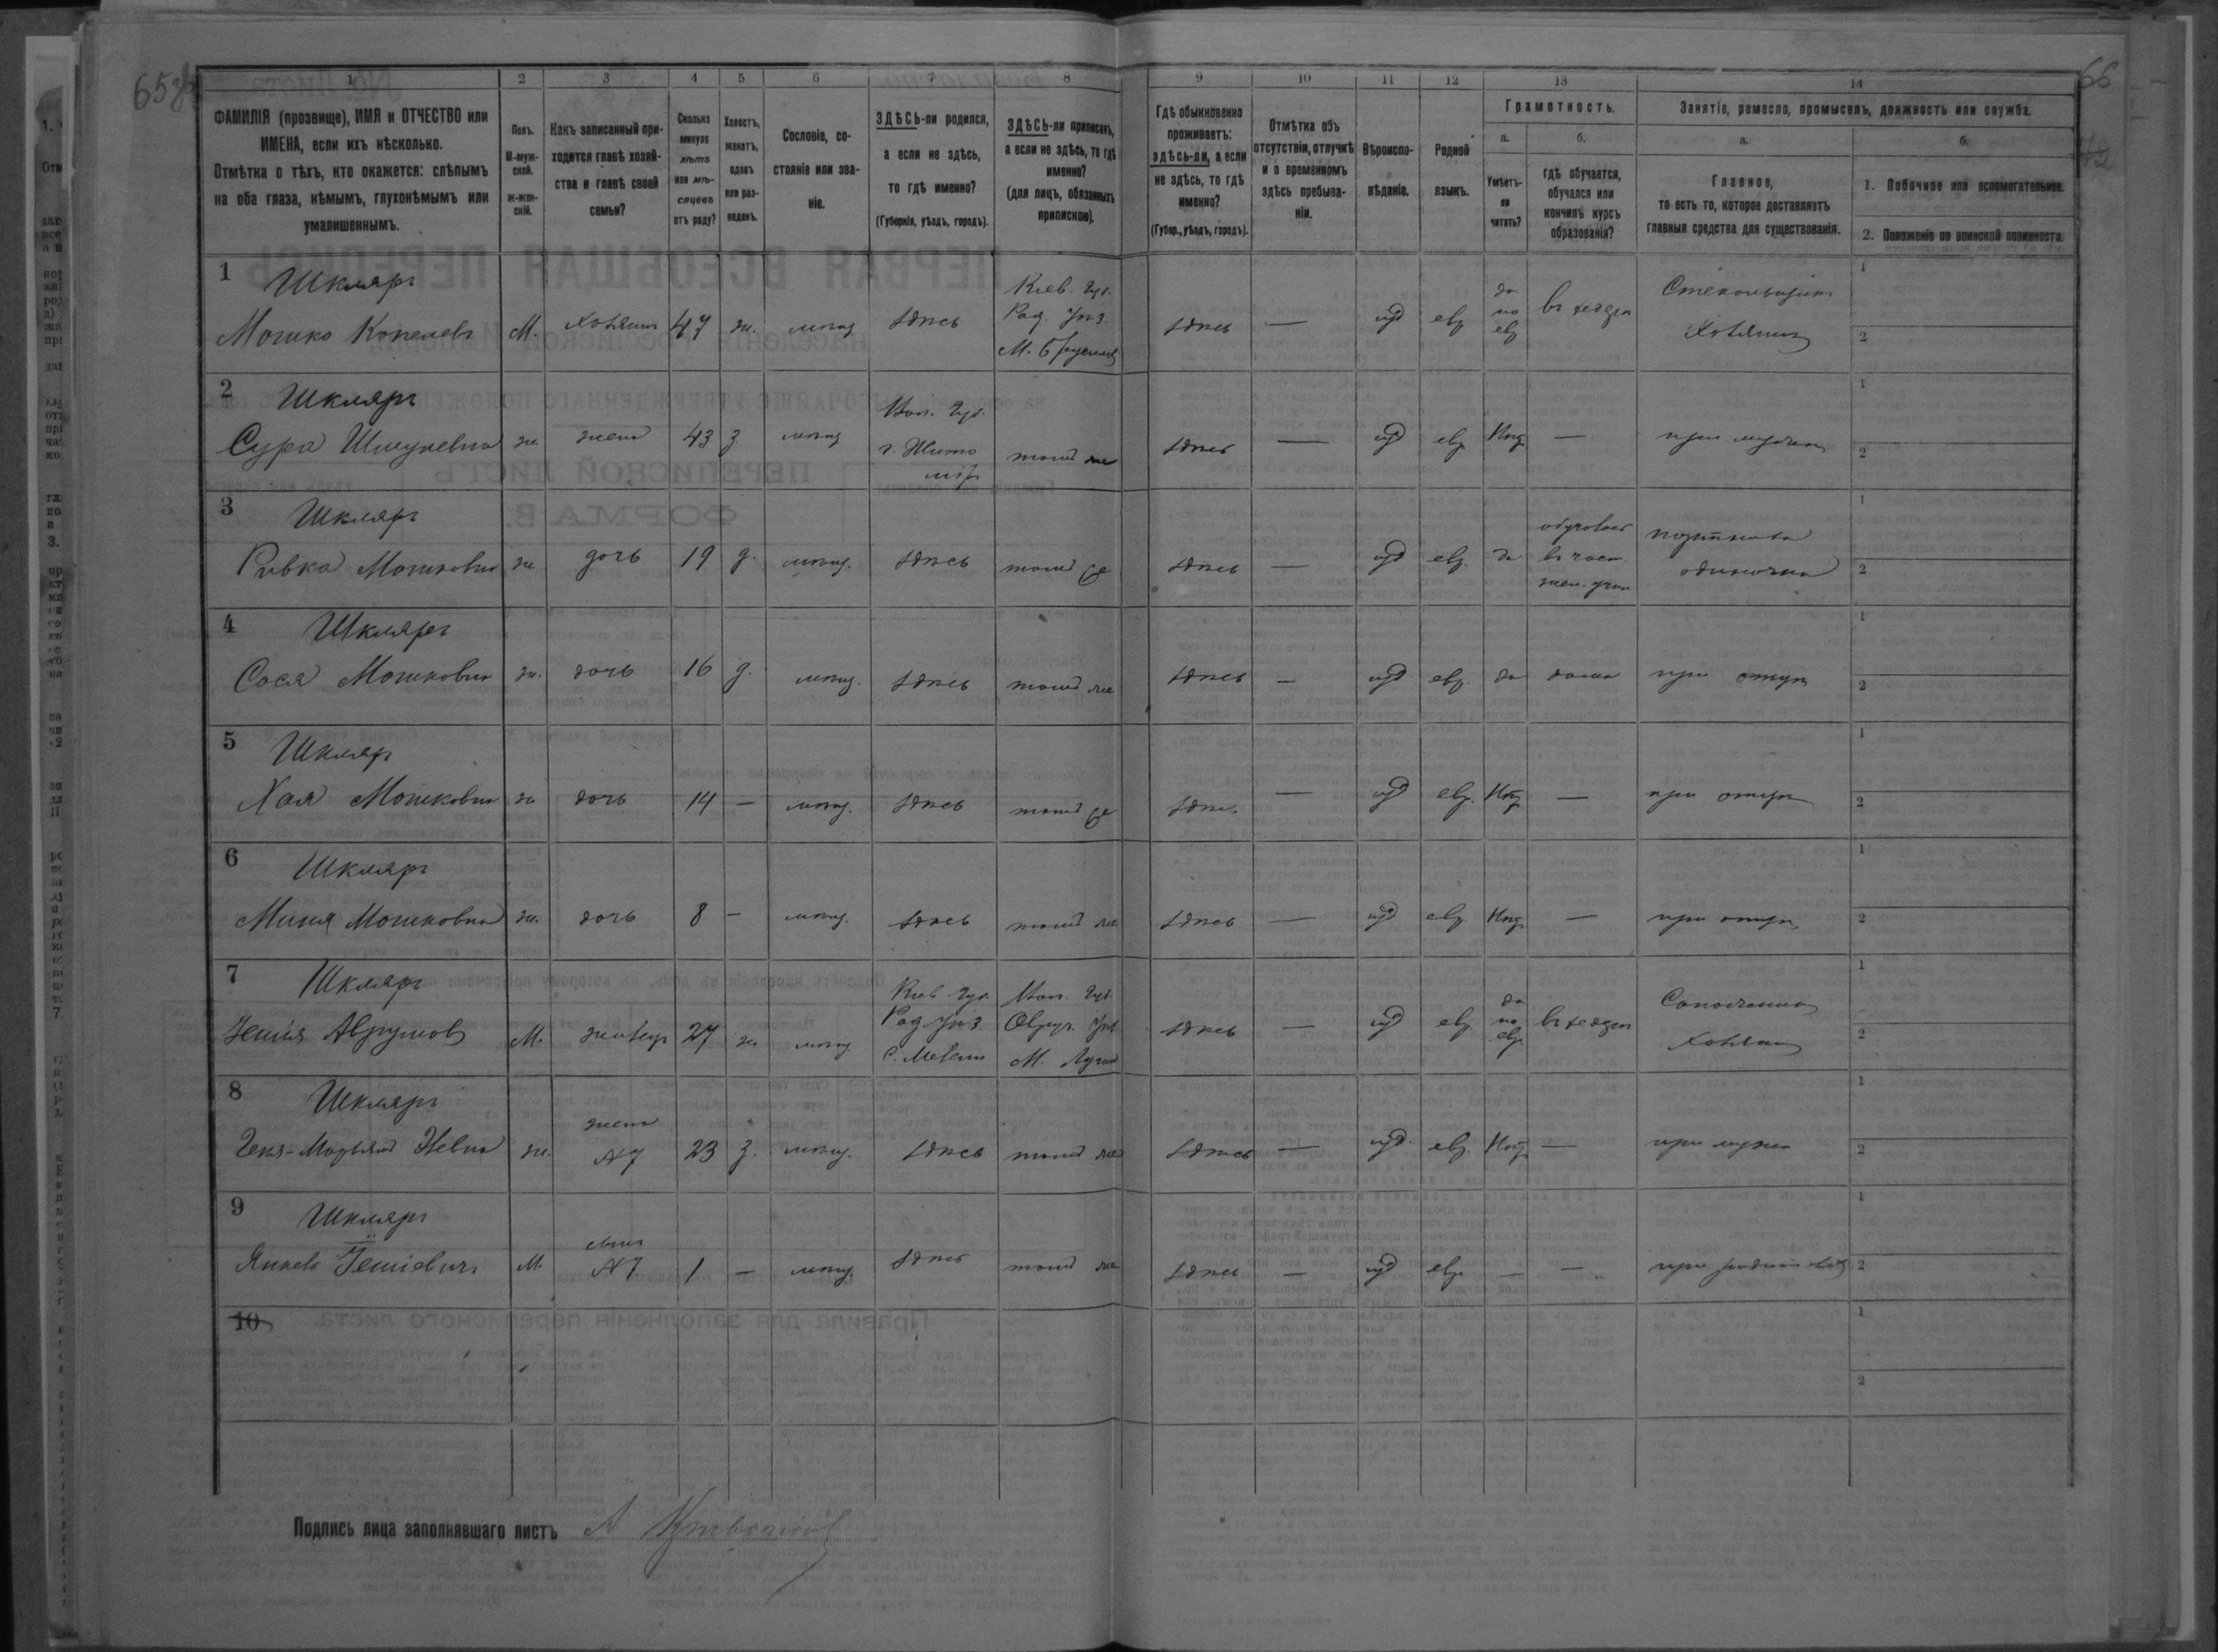 65об
66
1
2
3
4
5
6
7
8
9
10
11
12
13
14
ФАМИЛІЯ (прозвище), ИМЯ и ОТЧЕСТВО или
ИМЕНА, если ихъ нѣсколько.
Отмѣтка о тѣхъ, кто окажется: слѣпымъ
на оба глаза, нѣмымъ, глухонѣмымъ или
умалишеннымъ.
Полъ.
М-муж-
ской.
ж-жен-
скій.
Какъ записанный при-
ходится главѣ хозяй-
ства и главѣ своей
семьи?
Сколько
минуло
лѣтъ
или мѣ-
сяцевъ
отъ роду?
Холостъ,
женатъ,
вдовъ
или раз-
веденъ.
Сословіе, со-
стояніе или зва-
ніе.
ЗДѢСЬ-ли родился,
а если не здѣсь,
то гдѣ именно?
(Губернія, уѣздъ, городъ).
ЗДѢСЬ-ли приписанъ,
а если не здѣсь, то гдѣ
именно?
(для лицъ, обязанныхъ
припискою).
Гдѣ обыкновенно
проживаетъ:
здѣсь-ли, а если
не здѣсь, то гдѣ
именно?
(Губер., уѣздъ, городъ).
Отмѣтка объ
отсутствіи, отлучкѣ
и о временномъ
здѣсь пребыва-
ніи.
Вѣроиспо-
вѣданіе.
Родной
языкъ.
Грамотность.
а.
Умѣетъ-
ли
читать?
б.
гдѣ обучается,
обучался или
кончилъ курсъ
образованія?
Занятіе, ремесло, промыселъ, должность или служба.
а.
Главное,
то есть то, которое доставляетъ
главныя средства для существованія.
б.
1. Побочное или вспомогательное.
2. Положеніе по воинской повинности.
1
Шкляръ
Мошко Копелевъ
М.
хозяинъ
47
ж.
мѣщ
здѣсь
Кіев. губ.
Рад. уѣз.
М. Брусилов
здѣсь
—
иуд
евр
да
по
евр
въ хедерѣ
Стекольщикъ
Хозяинъ
1
2
2
Шкляръ
Сура Шмулевна
ж
жена
43
з
мѣщ
Вол. губ.
г. Жито
міръ
тамъ же
здѣсь
—
иуд
евр
Нѣтъ
—
при мужѣ
1
2
3
Шкляръ
Ривка Мошковна
ж
дочь
19
д.
мѣщ.
здѣсь
тамъ же
здѣсь
—
иуд
евр.
да
въ част.
жен. учил
одиночка
1
2
4
Шкляръ
Сося Мошковна
ж.
дочь
16
д.
мѣщ.
здѣсь
тамъ же
здѣсь
—
иуд
евр.
да
дома
при отцѣ
1
2
5
Шкляръ
Хая Мошковна
ж
дочь
14
—
мѣщ.
здѣсь
тамъ же
здѣсь
—
иуд
евр.
Нѣтъ
—
при отцѣ
1
2
6
Шкляръ
Миня Мошковна
ж.
дочь
8
—
мѣщ.
здѣсь
тамъ же
здѣсь
—
иуд
евр.
Нѣтъ
—
при отцѣ
1
2
7
Шкляръ
Аврумовъ
М.
27
ж
мѣщ
Кіев губ.
Рад. уѣз.
Вол. губ.
Овруч. уѣз
М. Лугин
здѣсь
—
иуд
евр.
да
по
евр.
въ хедерѣ
Сапожникъ
Хозяинъ
1
2
8
Шкляръ
ж.
жена
№7
23
з.
мѣщ.
здѣсь
тамъ же
здѣсь
—
иуд.
евр.
Нѣтъ
—
при мужѣ
1
2
9
Шкляръ
М.
сынъ
№7
1
—
мѣщ.
здѣсь
тамъ же
здѣсь
—
иуд
евр.
—
—
1
2
10
1
2
Подпись лица заполнявшаго листъ